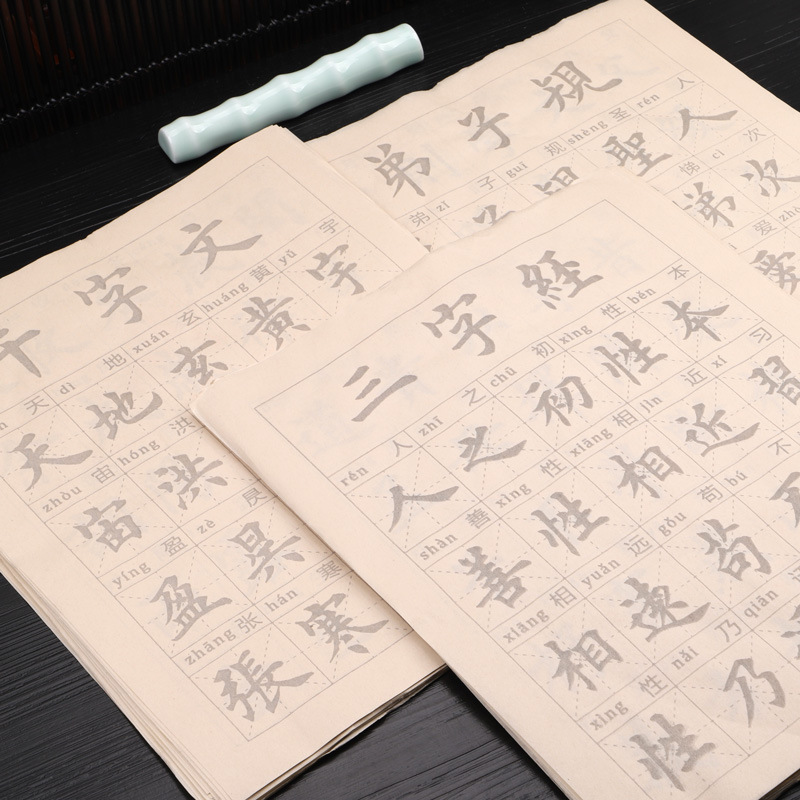 千字文
天 dì 地 xuán 玄 huáng 黄 yǔ 宇
天地玄黃宇
zhòu 宙 hóng 洪
宙洪
yíng 盈 zè 昃
盈昃
zhāng 张 hán 寒
張寒
弟子規
弟 zǐ 子 guī 规 shèng 圣 rén 人
子規聖人
悌 cì 次
悌次
爱
愛
三字經
rén 人 zhī 之 chū 初 xìng 性 běn 本
人之初性本
shàn 善 xìng 性 xiāng 相 jìn 近 xí 习
善性相近習
xiāng 相 yuǎn 远 gǒu 苟 bú 不
相遠苟
xìng 性 nǎi 乃 qiān
性乃